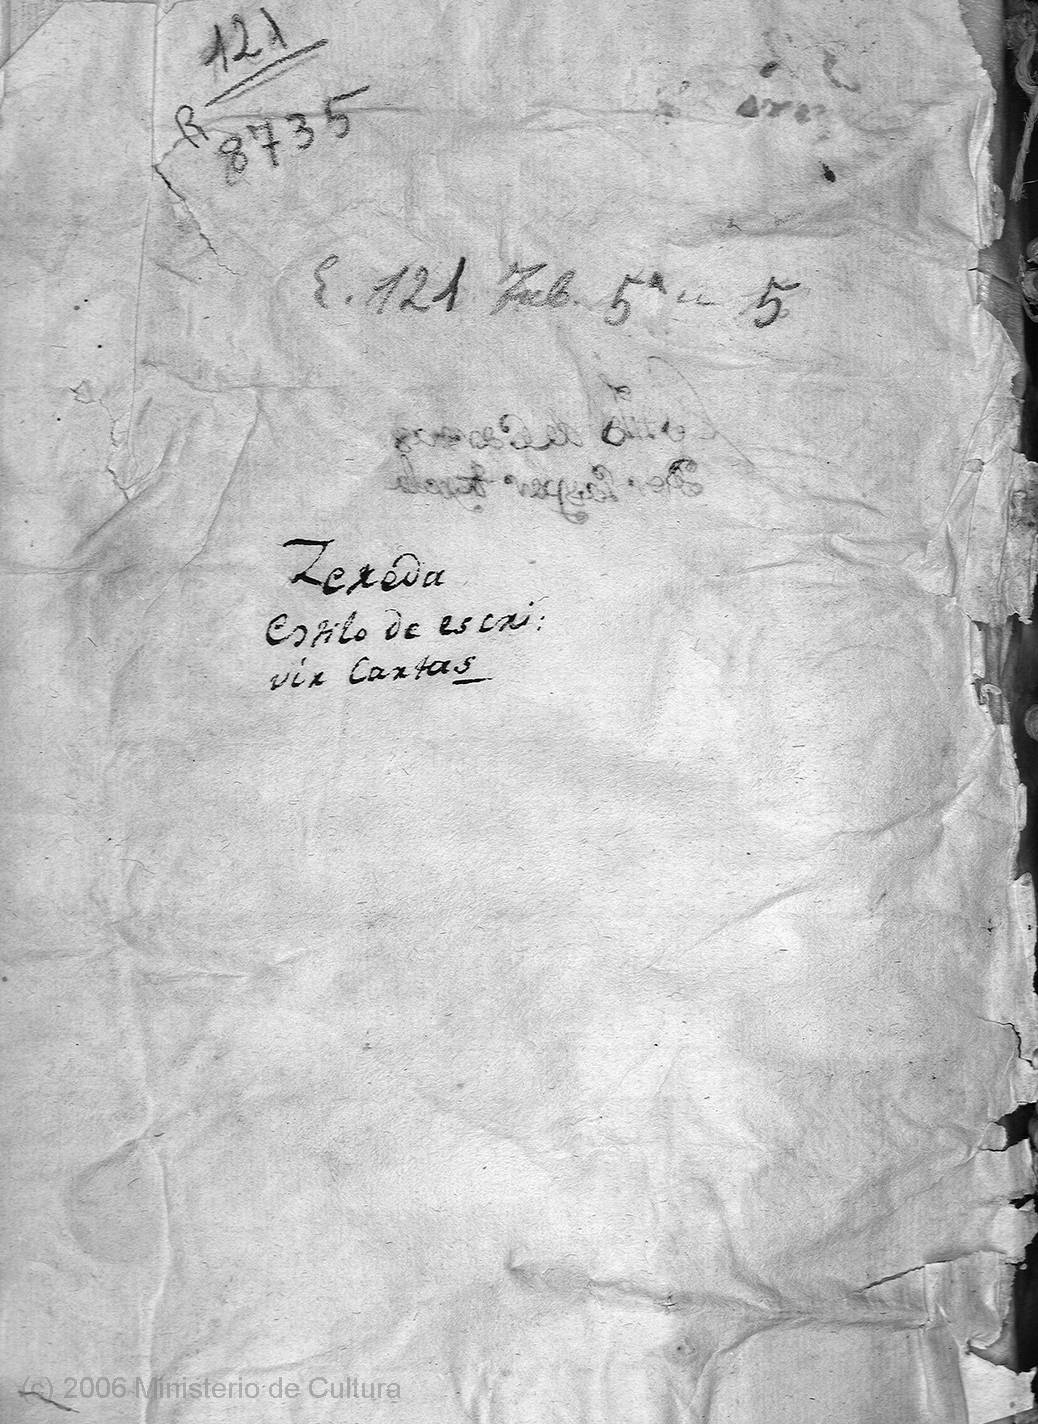 121
R 8735
E. 121 Tab. 5ª n 5
Texeda
Estilo de escri:
vir Cartas
(c) 2006 Ministerio de Cultura